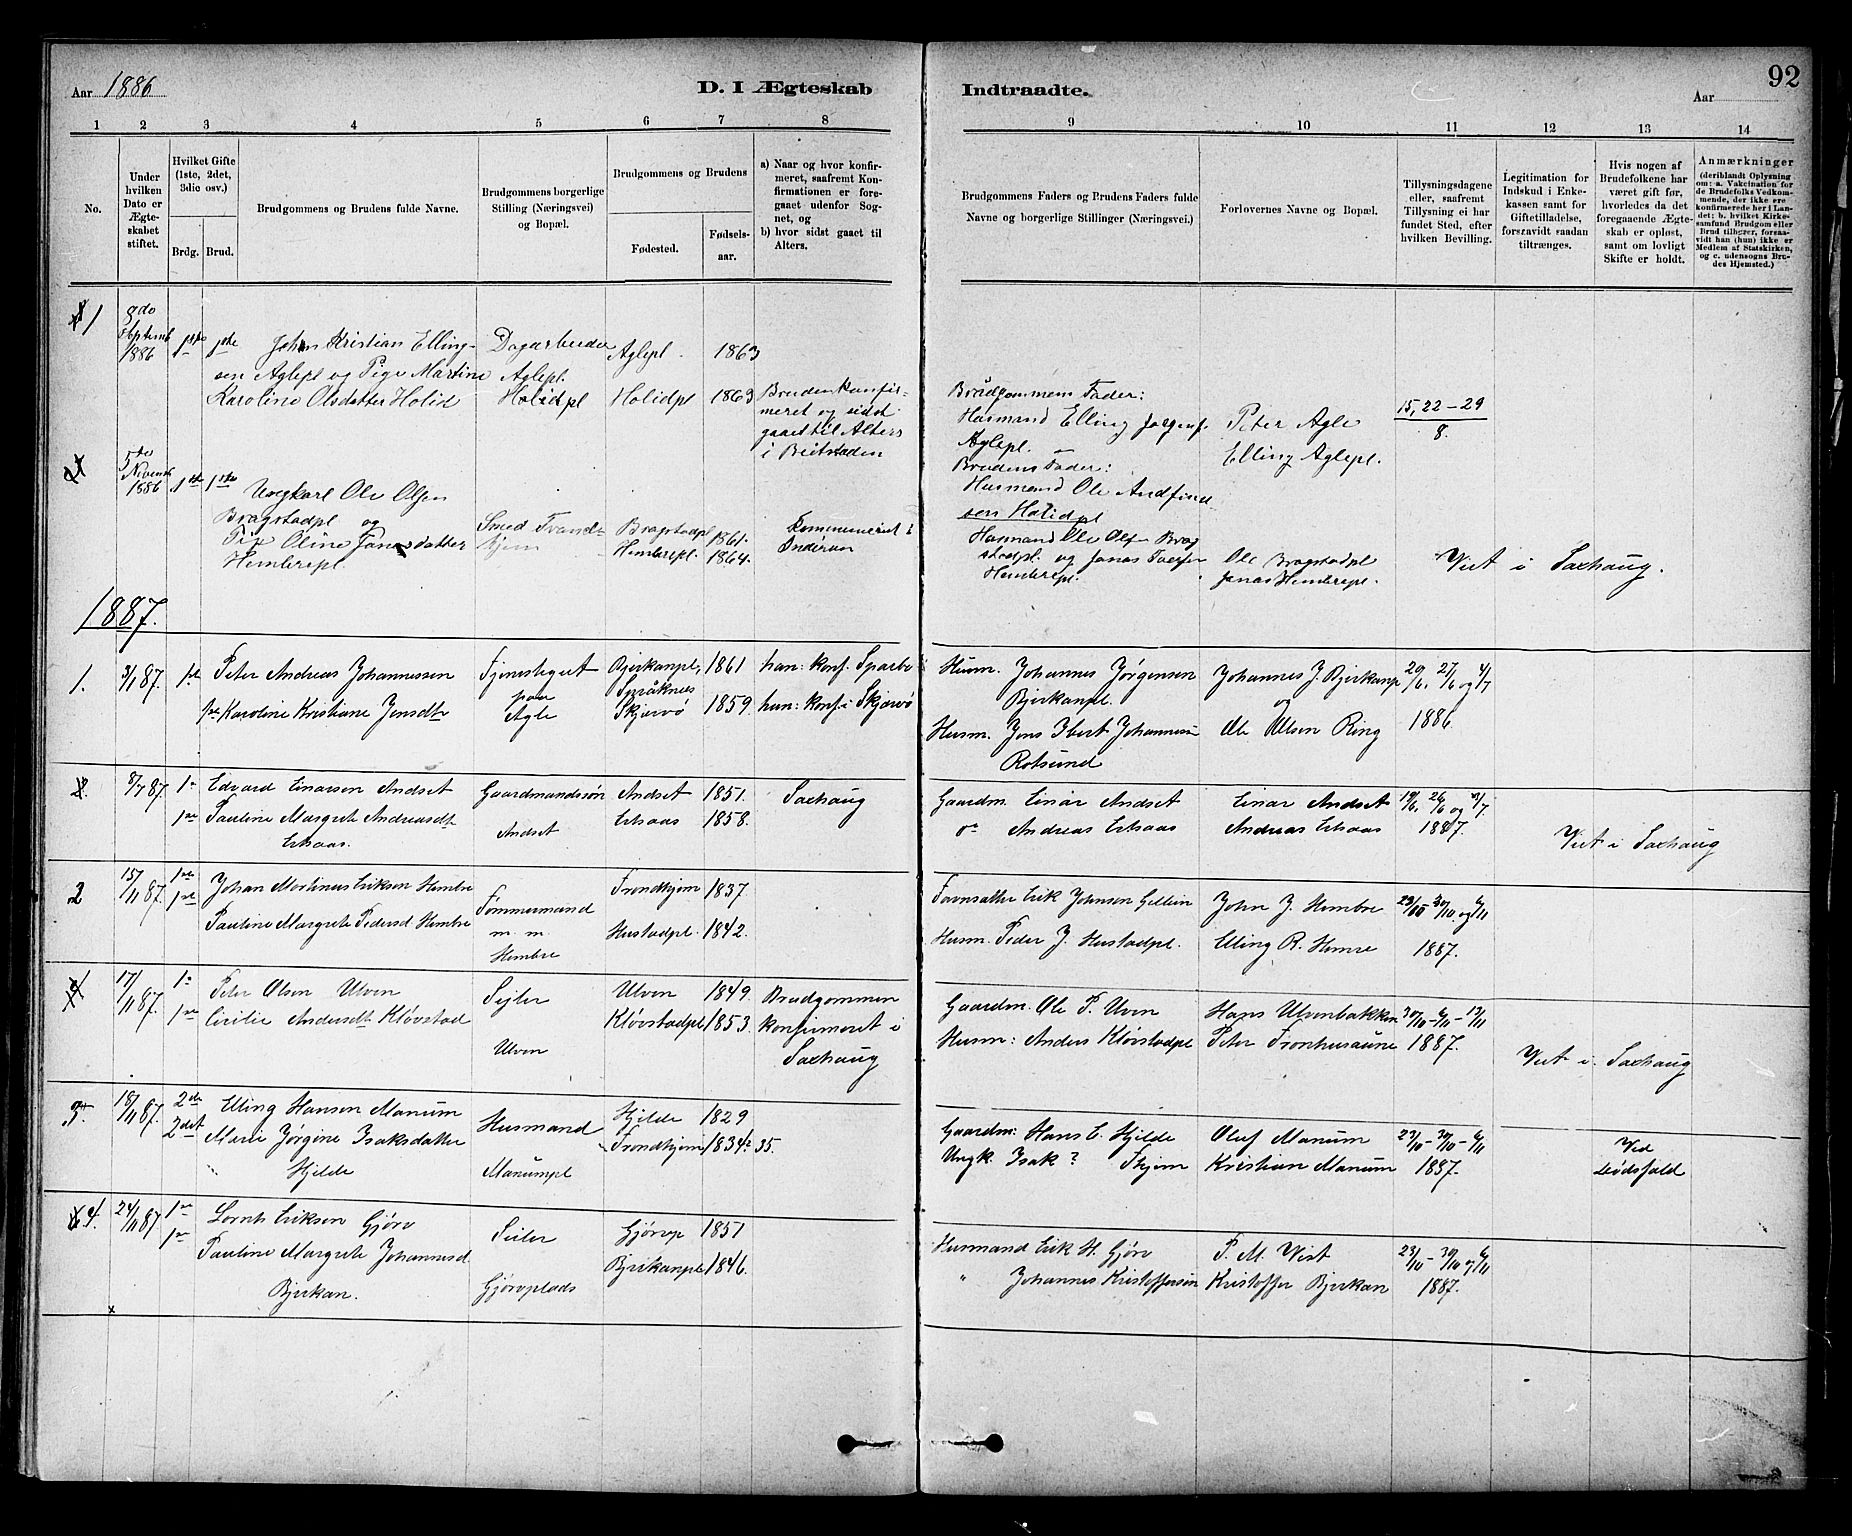 Aar 1886 D. I Ægteskab Indtraadte. Aar 92
1 2 3 4 5 6 7 8 9 10 11 12 13 14
No.
Under hvilken Dato er Ægteskabet stiftet.
Hvilket Gifte (1ste, 2det, 3die osv.)
Brdg. Brud.
Brudgommens og Brudens fulde Navne.
Brudgommens borgerlige Stilling (Næringsvei) og Bopæl.
Brudgommens og Brudens
Fødested. Fødselsaar.
a) Naar og hvor konfirmeret, saafremt Konfirmationen er foregaaet udenfor Sognet, og
b) hvor sidst gaaet til Alters.
Brudgommens Faders og Brudens Faders fulde Navne og borgerlige Stillinger (Næringsvei.)
Forlovernes Navne og Bopæl.
Tillysningsdagene eller, saafremt Tillysning ei har fundet Sted, efter hvilken Bevilling.
Legitimation for Indskud i Enkekassen samt for Giftetilladelse, forsaavidt saadan tiltrænges.
Hvis nogen af Brudefolkene har været gift før, hvorledes da det foregaaende Ægteskab er opløst, samt om lovligt Skifte er holdt.
Anmærkninger (deriblandt Oplysning om: a. Vakcination for de Brudefolks Vedkommende, der ikke ere konfirmerede her i Landet: b. hvilket Kirkesamfund Brudgom eller Brud tilhører, forsaavidt han (hun) ikke er Medlem af Statskirken, og c. udensogns Brudes Hjemsted.)
1
Septemb 1886
1ste 1ste
Johan Kristian Ellingsen Aglepl og Pige Martine Karoline Olsdatter Holid
Dagarbeider Aglepl. Holidpl
Aglepl. 1863
Holidpl 1863
Bruden konfirmeret og sidst gaaet til Alters i Beitstaden
Brudgommens Fader: Husmand Elling Aglepl.
Brudens Fader: Husmand Ole Andfinnsen Holidpl
Peter Agle
Elling Aglepl.
15, 22 – 29
8.
5te Novemb 1886
1ste 1ste
Ungkarl Ole Olsen Bragstadpl og Pige Oline Jonasdatter Hembrepl
Smed Trondhjem
Bragstadpl 1861.
Hembrepl. 1864.
Kommuneret i Inderøen
Husmand Ole Olsen Bragstadpl. og Jonas Hembrepl.
Ole Bragstadpl
Jonas Hembrepl.
Viet i Saxhaug.
1887.
1. 3/1 87. 1ste
Peter Andreas Johannessen
1ste Karoline Kristiane Jensdt
paa Agle
Bjerkanpl, 1861
Skjærvö 1859.
han: konf. Sparbu
hun: konf. i Skjærvö
Husm. Johannes Jørgensen Bjerkanpl.
Husm. Jens Johannesen Rotsund
Johannes J. Bjerkanp
og
Ole Olsen Ring
20/6, 27/6 og 4/7
1886.
2. 8/7 87.
Edvard Einarsen Andset
Pauline Margrete Andreasdt.
Gaardmandssön Andset
Andset 1851.
1858.
Saxhaug
Gaardm. Einar Andset
Andreas
Einar Andset
Andreas
19/6, 26/6 og 3/7
1887.
Viet i Saxhaug
2 15/11 87.
Johan Martinus Eriksen Hembre
Pauline Margrete Pedersd Hembre
Tømmermand m. m. Hembre
Trondhjem 1837
Hustadpl. 1842.
Erik Johnsen
Husm. Peder J. Hustadpl.
John J. Hembre
Elling R. Hemre
23/10 – 30/10 og 6/11
1887.
17/11 87.
Peter Olsen Ulven
Cecilie Andersdt. Kløvstad
Sejler Ulven
Ulven 1849.
Kløvstadpl 1853.
Brudgommen konfirmeret i Saxhaug
Gaardm. Ole P. Uvin
Husm: Anders Kløvstadpl
Hans Ulvenbakken
Peter Fronhusaune
30/10 – 6/11 – 13/11
1887.
Viet i Saxhaug
3. 18/11 87. 2de 2det
Elling Hansen Manum
Marie Jørgine Isaksdatter Hjelde
Husmand Manumpl
Hjelde 1829
Trondhjem 1834 35.
Gaardm: Hans E. Hjelde
Ungk. Isak ? Thjem
Oluf Manum
Kristian Manum
23/10 – 30/10 – 6/11
1887.
Ved Dødsfald
4. 24/11 87.
Lornts Eriksen Gjørv
Pauline Margrete Johannesd Bjerkan.
Seiler Gjørvplads
Gjørvp 1851
Bjerkanpl 1846.
Husmand Erik H. Gjørv
" Johannes Kristoffersen
P. M. Vist
Kristoffer Bjerkan
23/10 – 30/10 og 6/11
1887.